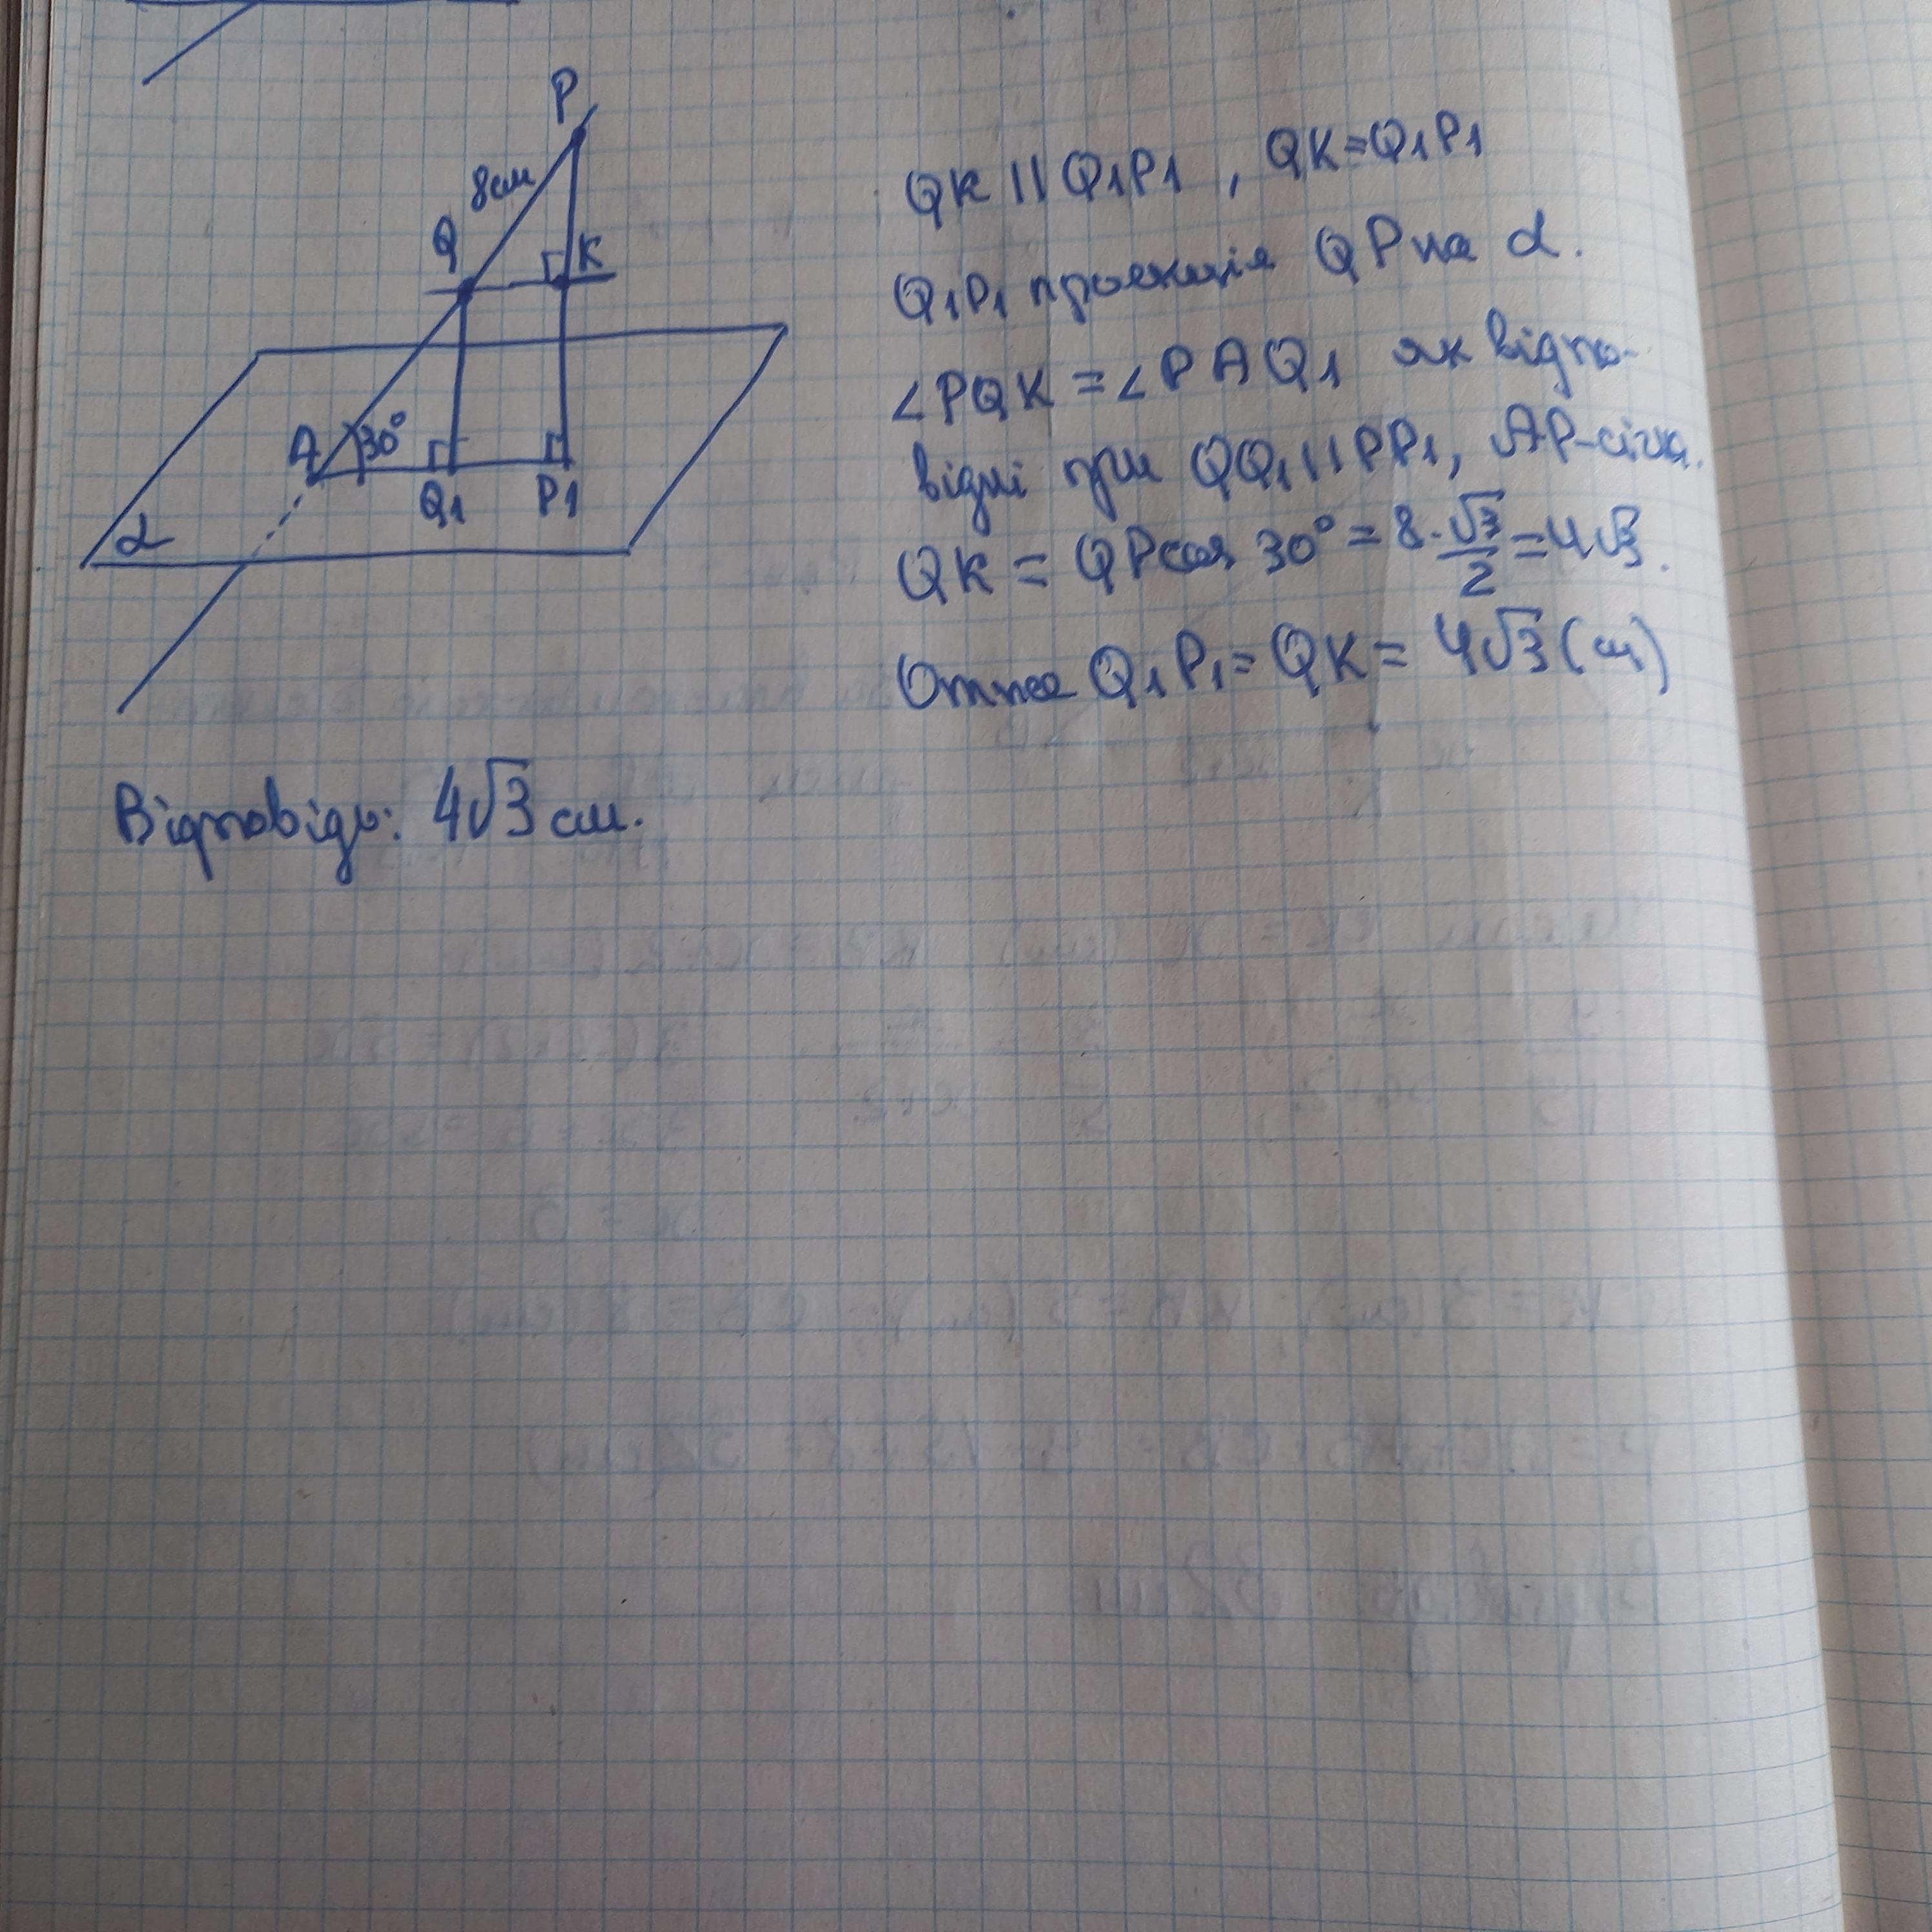 P
8см
Q
K
A
30°
Q1
P1
α
QK || Q1P1, QK=Q1P1
Q1P1 проекція QP на α.
∠PQK = ∠PAQ1 як відпо-
відні при QQ1 || PP1, AP-січна.
QK = QP cos 30° = 8·√3/2 = 4√3.
Отже Q1P1 = QK = 4√3 (см)
Відповідь: 4√3 см.